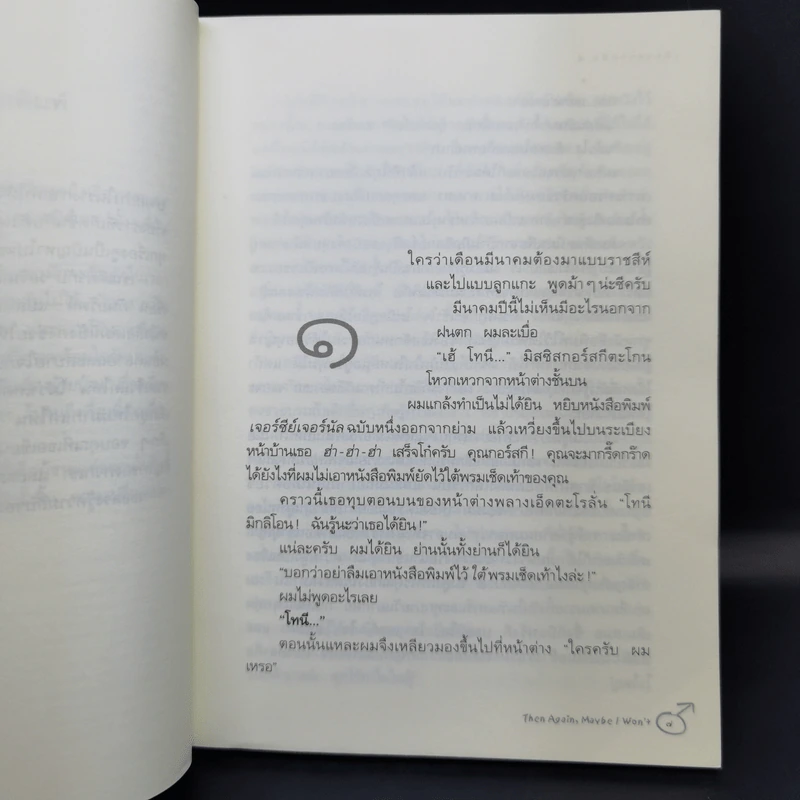 ใครว่าเดือนมีนาคมต้องมาแบบราชสีห์
และไปแบบลูกแกะ พูดม้าๆน่ะซีครับ
มีนาคมปีนี้ไม่เห็นมีอะไรนอกจาก
ฝนตก ผมละเบื่อ
๑
"เฮ้ โทนี..." มิสซิสกอร์สกีตะโกน
โหวกเหวกจากหน้าต่างชั้นบน
ผมแกล้งทำเป็นไม่ได้ยิน หยิบหนังสือพิมพ์
เจอร์ซีย์เจอร์นัลฉบับหนึ่งออกจากย่าม แล้วเหวี่ยงขึ้นไปบนระเบียง
หน้าบ้านเธอ ฮ่า-ฮ่า-ฮ่า เสร็จโก๋ครับ คุณกอร์สกี! คุณจะมากรี๊ดกร๊าด
ได้ยังไงที่ผมไม่เอาหนังสือพิมพ์ยัดไว้ใต้พรมเช็ดเท้าของคุณ
คราวนี้เธอทุบตอนบนของหน้าต่างพลางเอ็ดตะโรลั่น "โทนี
มิกลิโอน! ฉันรู้นะว่าเธอได้ยิน!"
แน่ละครับ ผมได้ยิน ย่านนั้นทั้งย่านก็ได้ยิน
"บอกว่าอย่าลืมเอาหนังสือพิมพ์ไว้ใต้พรมเช็ดเท้าไงล่ะ!"
ผมไม่พูดอะไรเลย
"โทนี..."
ตอนนั้นแหละผมจึงเหลียวมองขึ้นไปที่หน้าต่าง "ใครครับ ผม
เหรอ"
Then Again, Maybe I Won't